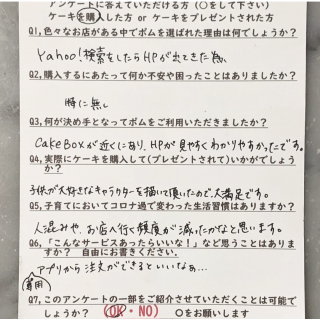 アンケートに答えていただける方（○をして下さい）
ケーキを購入した方 or ケーキをプレゼントされた方
Q1,色々なお店がある中でボムを選ばれた理由は何でしょうか？
Yahoo!検索をしたらHPが出てきた為
Q2,購入するにあたって何か不安や困ったことはありましたか？
特に無し
Q3,何が決め手となってボムをご利用いただきましたか？
CakeBoxが近くにあり、HPが見やすくわかりやすかったです。
Q4,実際にケーキを購入して(プレゼントされて)いかがでしょうか？
子供が大好きなキャラクターを描いて頂いたので、大満足です。
Q5,子育てにおいてコロナ過で変わった生活習慣はありますか？
人混みや、お店へ行く頻度が減ったかなと思います。
Q6,「こんなサービスあったらいいな！」など思うことはありますか？ 自由にお書きください。
専用アプリから注文ができるといいなぁ…
Q7,このアンケートの一部をご紹介させていただくことは可能でしょうか？ (OK・NO) ○をお願いします